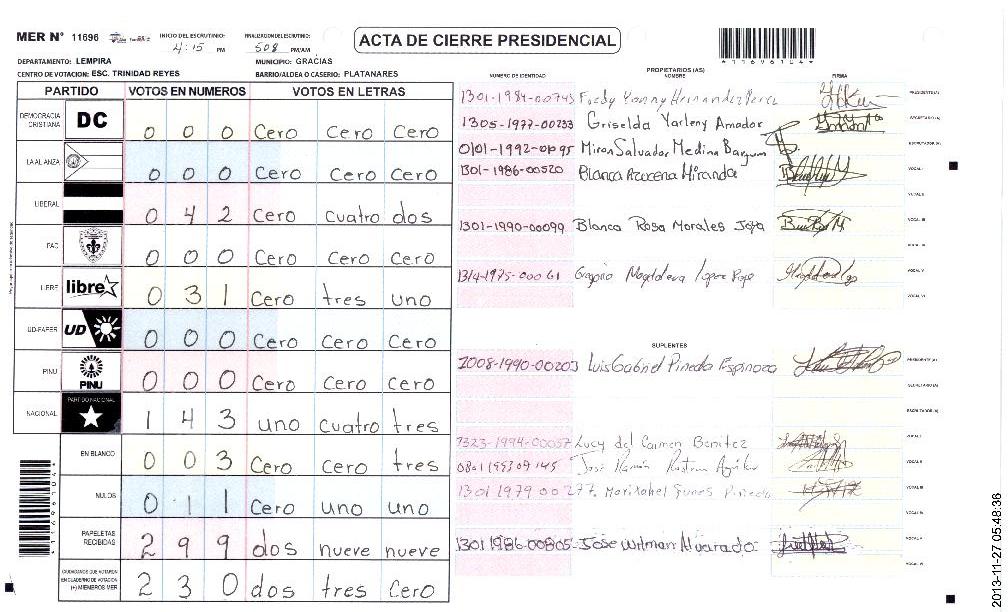 MER N° 11696
INICIO DEL ESCRUTINIO:
4:15 PM
FINALIZACION DEL ESCRUTINIO:
508 PM/AM
ACTA DE CIERRE PRESIDENCIAL
116961041
DEPARTAMENTO: LEMPIRA
MUNICIPIO: GRACIAS
CENTRO DE VOTACION: ESC. TRINIDAD REYES
BARRIO/ALDEA O CASERIO: PLATANARES
PARTIDO VOTOS EN NUMEROS VOTOS EN LETRAS
DEMOCRACIA CRISTIANA DC 0 0 0 Cero Cero Cero
LA ALIANZA 0 0 0 Cero Cero Cero
LIBERAL 0 4 2 Cero cuatro dos
PAC 0 0 0 Cero Cero Cero
LIBRE libre 0 3 1 Cero tres uno
UD-FAPER UD 0 0 0 Cero Cero Cero
PINU PINU 0 0 0 Cero Cero Cero
NACIONAL PARTIDO NACIONAL 1 4 3 uno cuatro tres
EN BLANCO 0 0 3 Cero Cero tres
NULOS 0 1 1 Cero uno uno
PAPELETAS RECIBIDAS 2 9 9 dos nueve nueve
CIUDADANOS QUE VOTARON EN CUADERNO DE VOTACION (+) MIEMBROS MER 2 3 0 dos tres Cero
PROPIETARIOS (AS)
NUMERO DE IDENTIDAD NOMBRE FIRMA
1301-1984-00743 Fredy Yanny Hernandez Perez PRESIDENTE (A)
1305-1977-00233 Griselda Yarleny Amador SECRETARIO (A)
Miron Salvador Medina ESCRUTADOR (A)
1301-1986-00520 Blanca Azucena Miranda VOCAL I
VOCAL II
1301-1990-00099 Blanca Rosa Morales VOCAL III
VOCAL IV
Magdalena Lopez VOCAL V
VOCAL VI
SUPLENTES
2008-1990-00203 Luis Gabriel Pineda Espinoza PRESIDENTE (A)
SECRETARIO (A)
ESCRUTADOR (A)
1323-1994-00057 Lucy del Carmen Benitez VOCAL I
Jose Ramón VOCAL II
1301 1979 00277 Maritabel Funes Pineda VOCAL III
VOCAL IV
1301 1986-00805 Jose Wilman Alvarado VOCAL V
VOCAL VI
2013-11-27 05:48:36